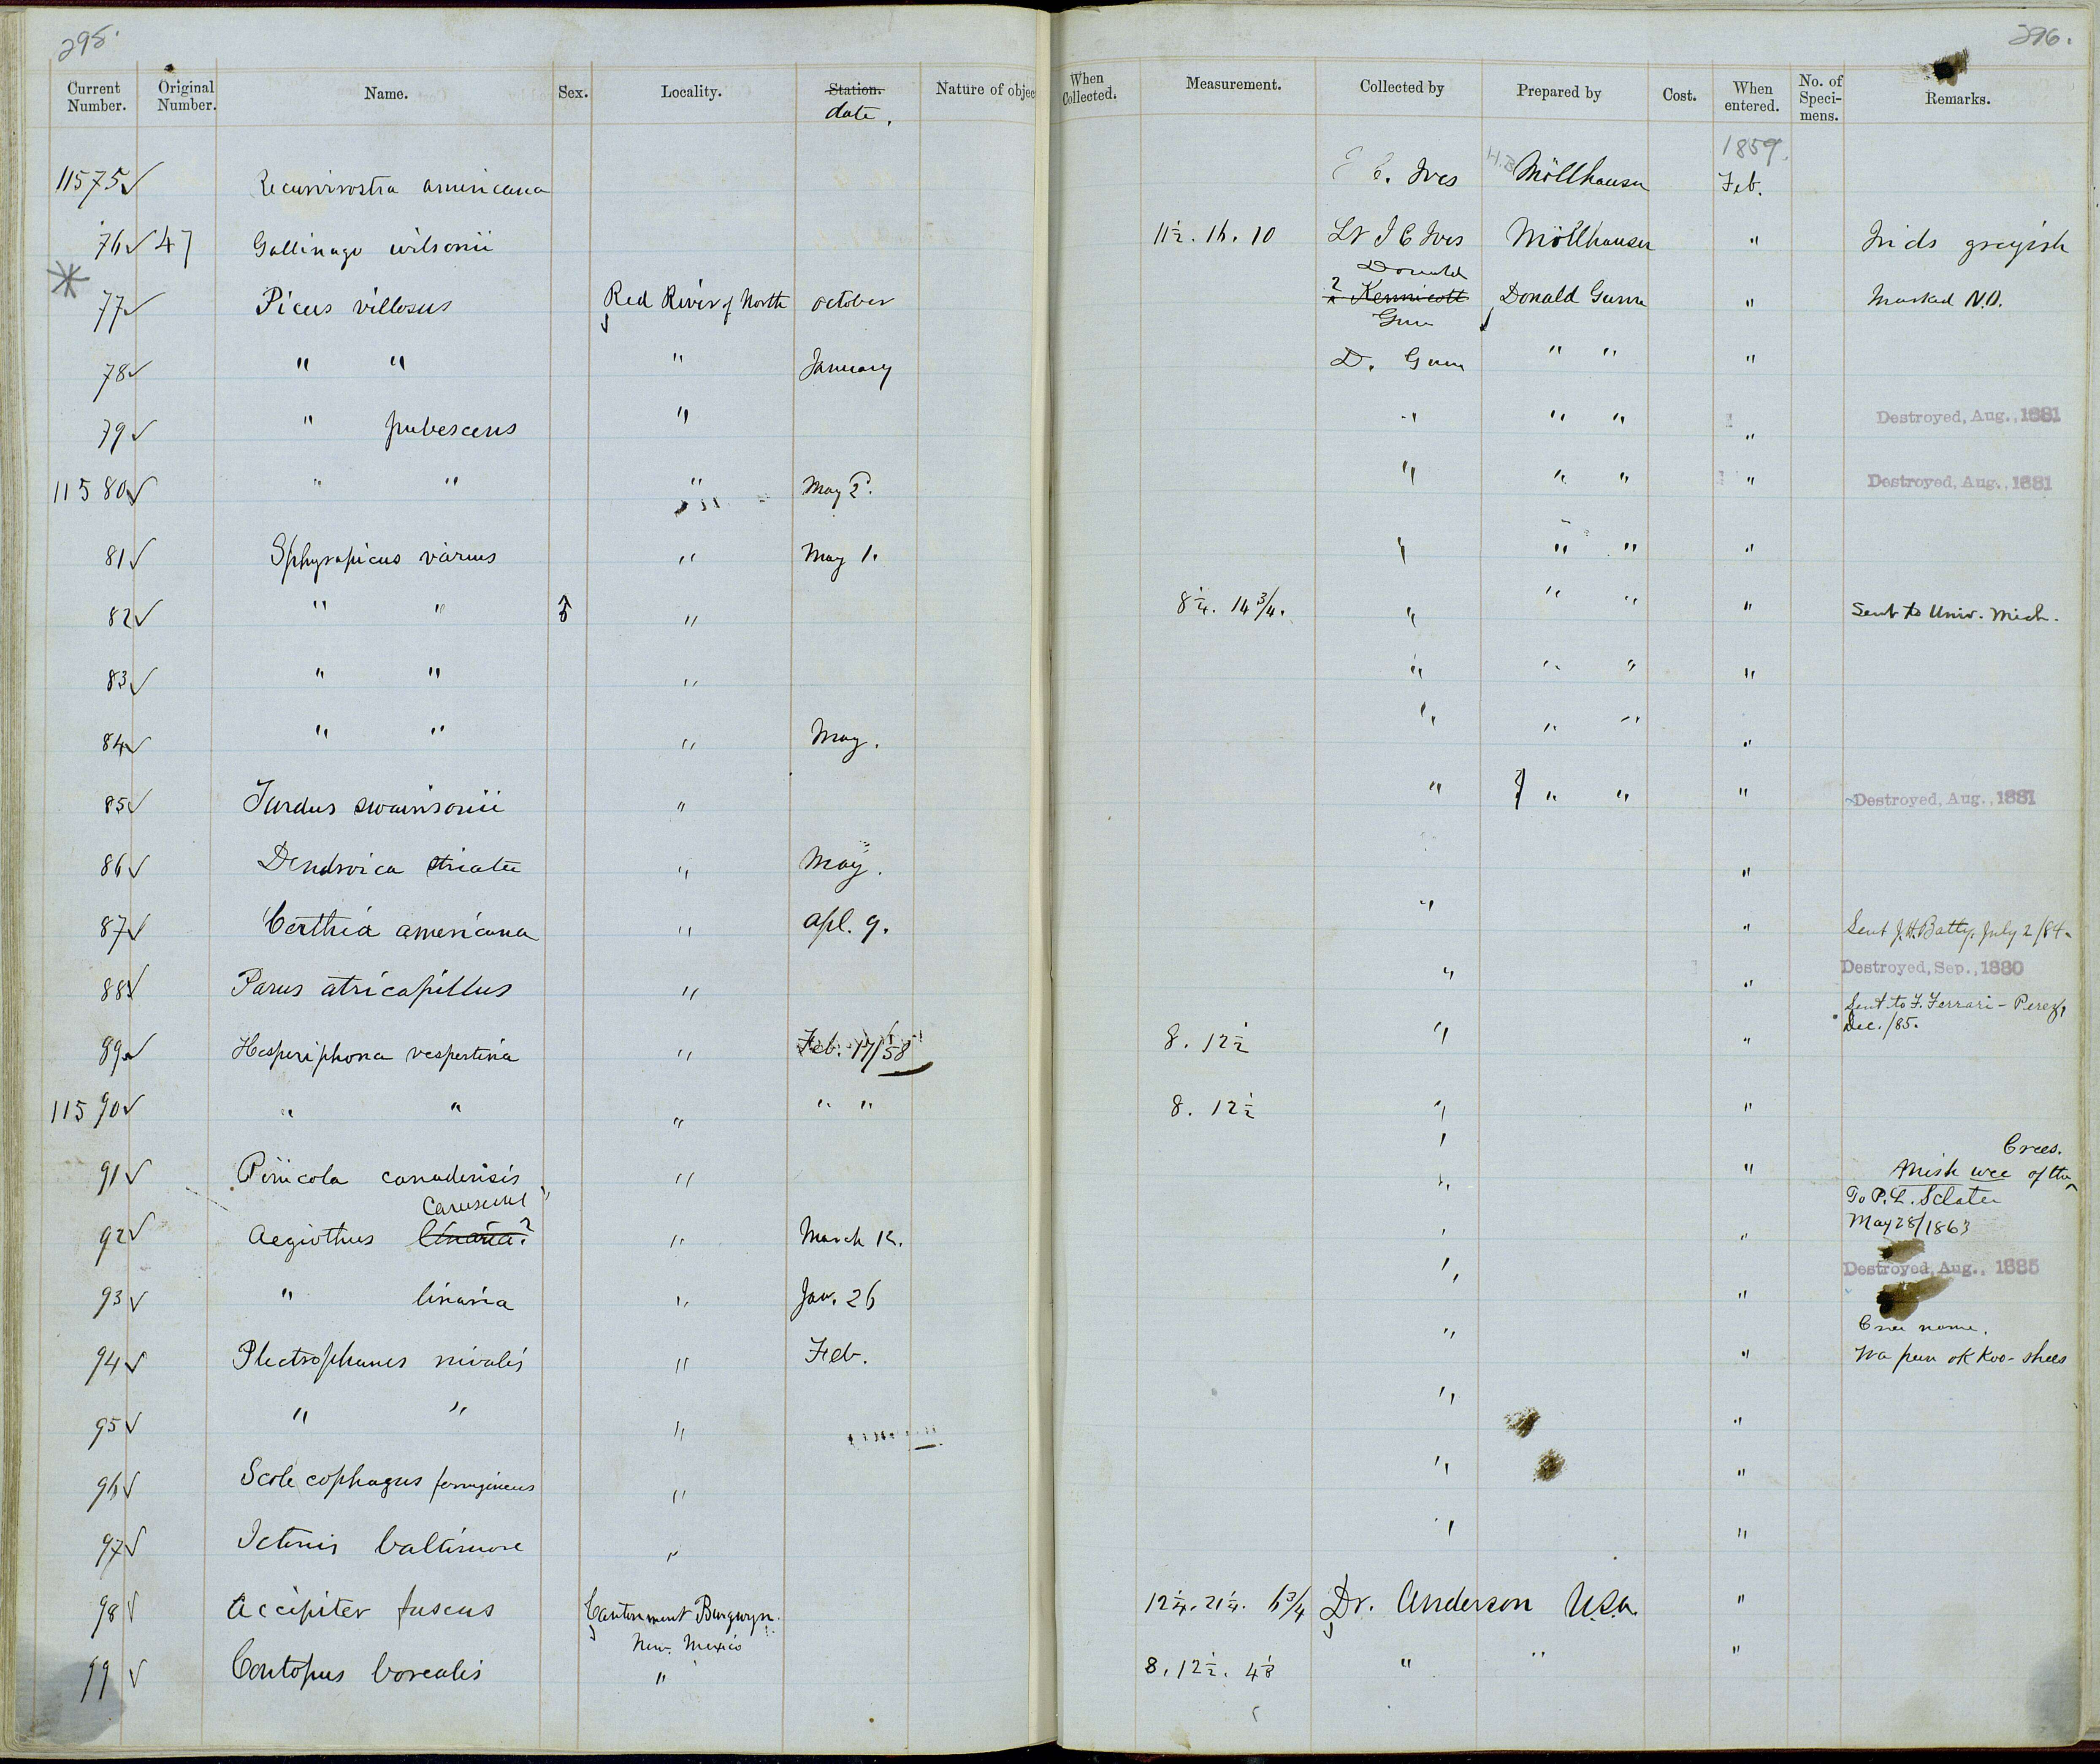 295.
296.
Current Number. Original Number. Name. Sex. Locality. Station. Nature of objec When Collected. Measurement. Collected by Prepared by Cost. When entered. No. of Speci-mens. Remarks.
date.
1859.
11575 ✓ Recurvirostra americana C. Ives H.B. Möllhausen Feb.
76 ✓ 47 Gallinago wilsonii 11½. 16. 10 Lt J C Ives Möllhausen " Irids greyish
Donald
* 77 ✓ Picus villosus Red River of North October ? Kennicott Donald Gunn " Marked N.D.
Gunn
78 ✓ " " " January D. Gunn " " "
79 ✓ " pubescens " " " " " Destroyed, Aug., 1881
11580 ✓ " " " May 2. " " " " Destroyed, Aug., 1881
81 ✓ Sphyrapicus varius " May 1. " " " "
82 ✓ " " ♂ " 8¼. 14¾. " " " " Sent to Univ. Mich.
83 ✓ " " " " " " "
84 ✓ " " " May. " " " "
85 ✓ Turdus swainsonii " " ? " " " Destroyed, Aug., 1881
86 ✓ Dendroica striata " May. "
87 ✓ Certhia americana " Apl. 9. " " Sent J.H. Batty, July 2/84.
88 ✓ Parus atricapillus " " " Destroyed, Sep., 1880
Sent to F. Ferrari-Perez,
Dec. /85.
89 ✓ Hesperiphona vespertina " Feb. 17/58 8. 12½ " "
11590 ✓ " " " " " 8. 12½ " "
Crees.
91 ✓ Pinicola canadensis " " " Mish wee of the
To P. L. Sclater
May 28/1863
canescens
92 ✓ Aegiothus linaria.? " March 12. " "
Destroyed, Aug., 1885
93 ✓ " linaria " Jan. 26 " "
Cree name.
94 ✓ Plectrophanes nivalis " Feb. " " Wa pun ok koo-shees
95 ✓ " " " " "
96 ✓ Scolecophagus ferrugineus " " "
97 ✓ Icterus baltimore " " "
98 ✓ Accipiter fuscus Cantonment Burgwyn. 12¼. 21¼. 6¾ Dr. Anderson U.S.A. "
New Mexico
99 ✓ Contopus borealis " 8. 12½. 4⅛ " " "